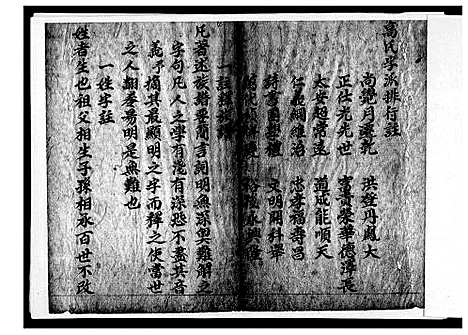 高氏字派排行註
尚覺月遷乾　洪登丹鳳大
正仕光先世　富貴榮華德澤長
太安超常遠　道成能順天
仁義綱維治　忠孝福壽昌
詩書國禮　文明開科舉
永興隆
一註釋
凡著述族譜要簡言詞明無深奧難解之
字句凡人之學有淺有深恐不盡其音
義予摘其最顯明之字而釋之使當世
之人翻孝易明是無難也
一姓字註
姓者生也祖父相生子孫相承百世不改